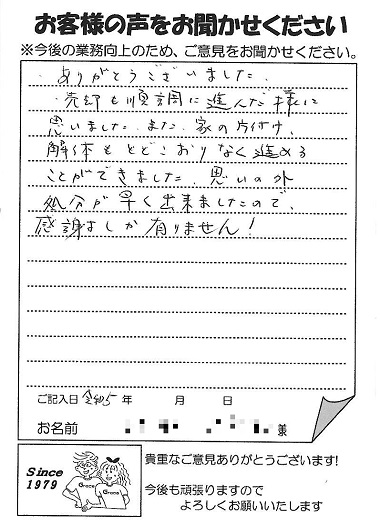 お客様の声をお聞かせください
※今後の業務向上のため、ご意見をお聞かせください。
ありがとうございました。
売却も順調に進んだ様に
思いました。また、家の片付け、
解体もとどこおりなく進める
ことができました。思いの外
処分が早く出来ましたので、
感謝しか有りません!
ご記入日 令和5 年 月 日
お名前 様
Since
1979
Grace
Grace
貴重なご意見ありがとうございます!
今後も頑張りますので
よろしくお願いいたします